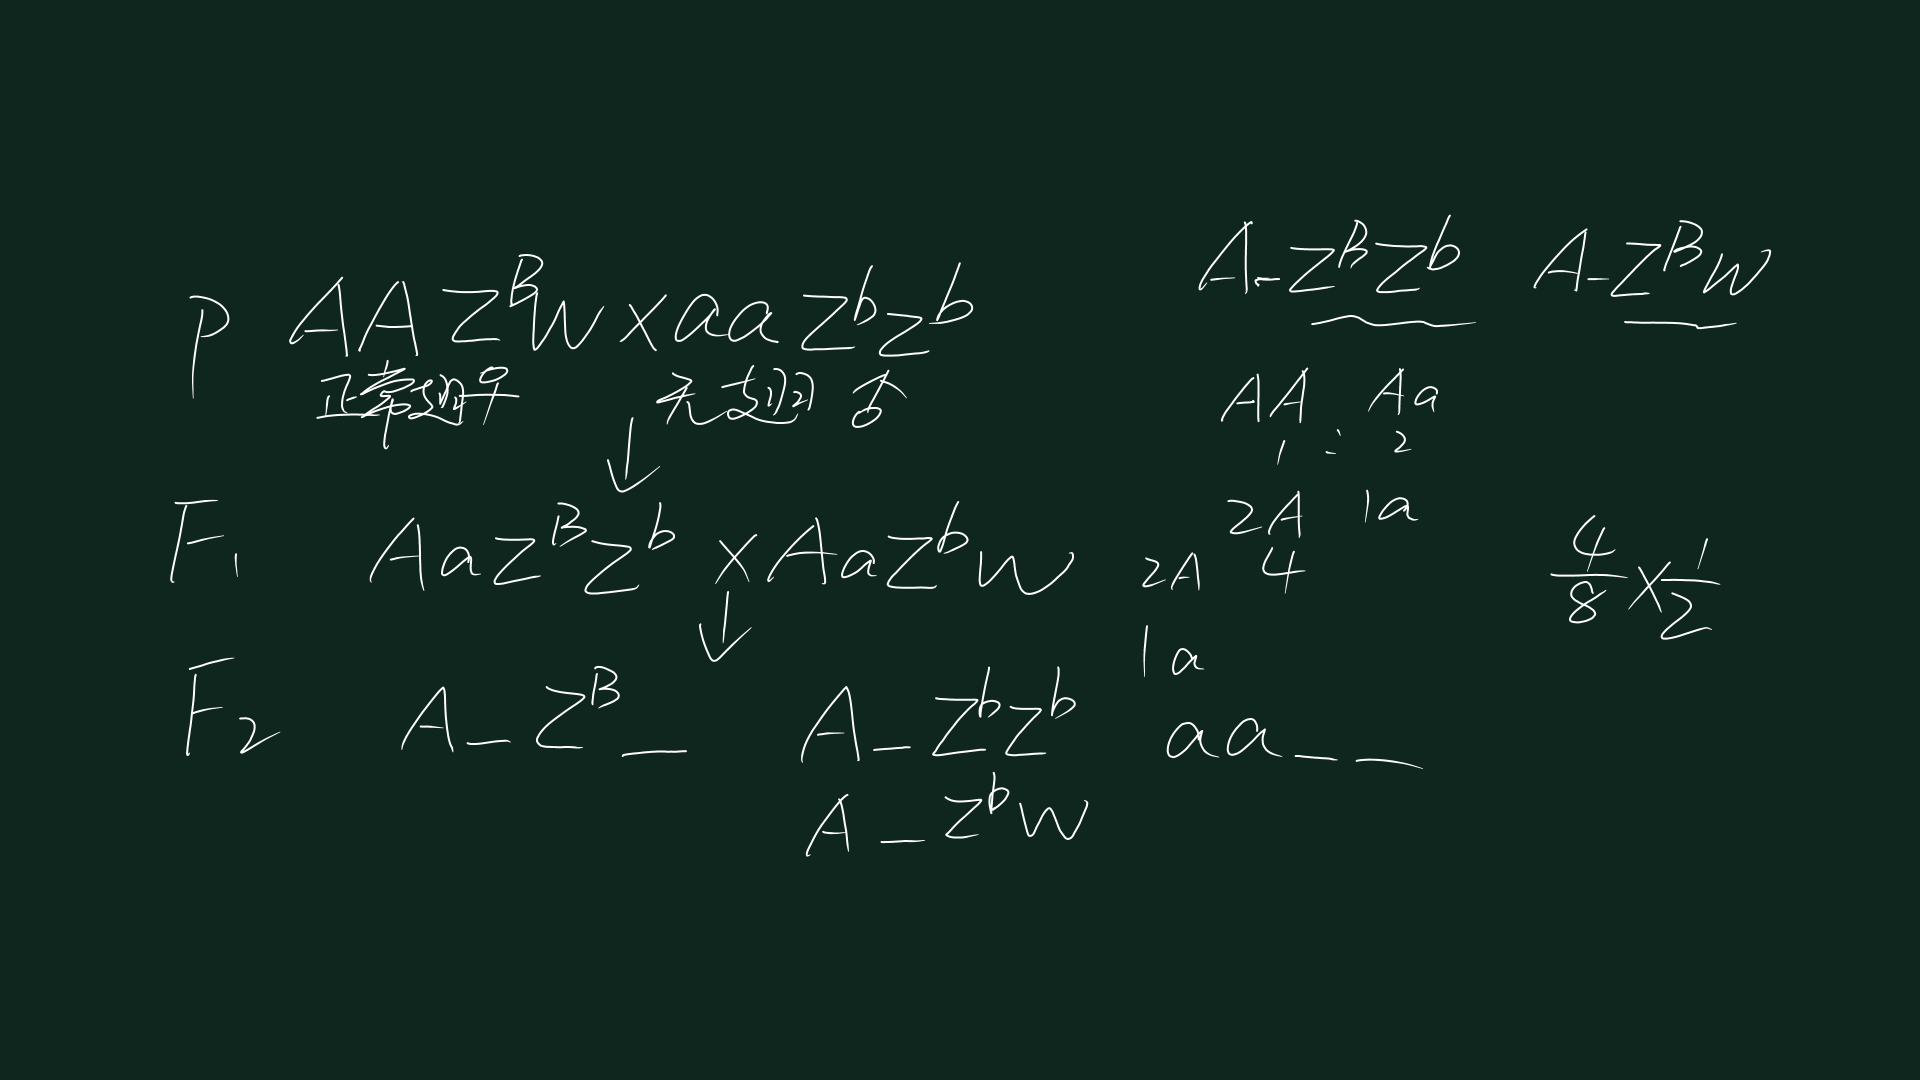 P AAZᴮW×aaZᵇZᵇ
正常翅♀ 无翅♂
↓
F₁ AaZᴮZᵇ×AaZᵇW
↓
F₂ A_Zᴮ_ A_ZᵇZᵇ aa_ _
A_ZᵇW
A_ZᴮZᵇ A_ZᴮW
AA Aa
1 : 2
2A 1a
2A 4
1a
4/8×1/2